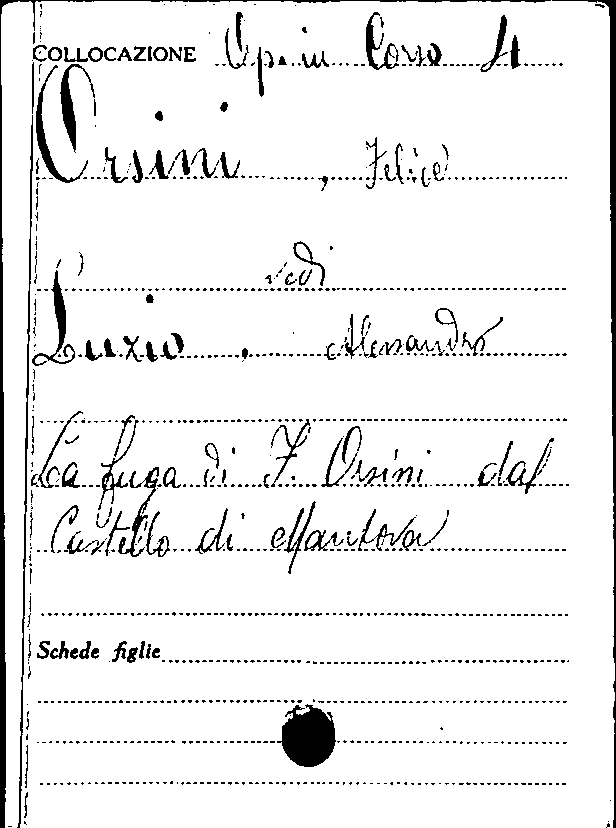 COLLOCAZIONE Op. in Corso 4
Orsini, Felice
vedi
Luzio, Alessandro
La fuga di F. Orsini dal
Castello di Mantova
Schede figlie